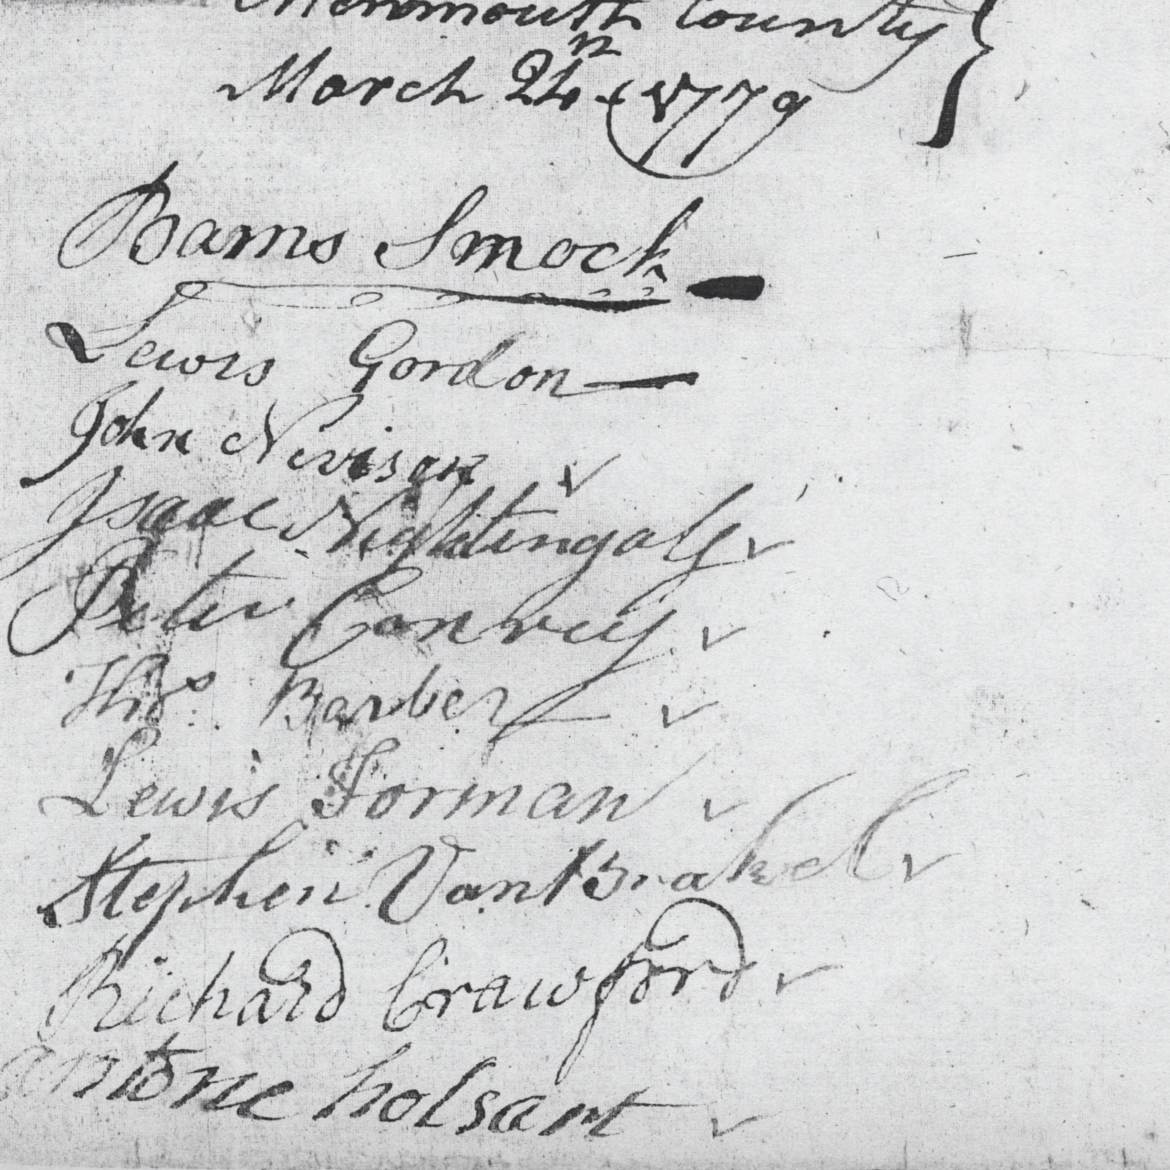 Monmouth County
March 24th 1779
Barns Smock
Lewis Gordon
John Nivison
Isaac Nightingale
Peter Conrey
Thos. Barber
Lewis Forman
Stephen VanBrakel
Richard Crawford
antone holsart